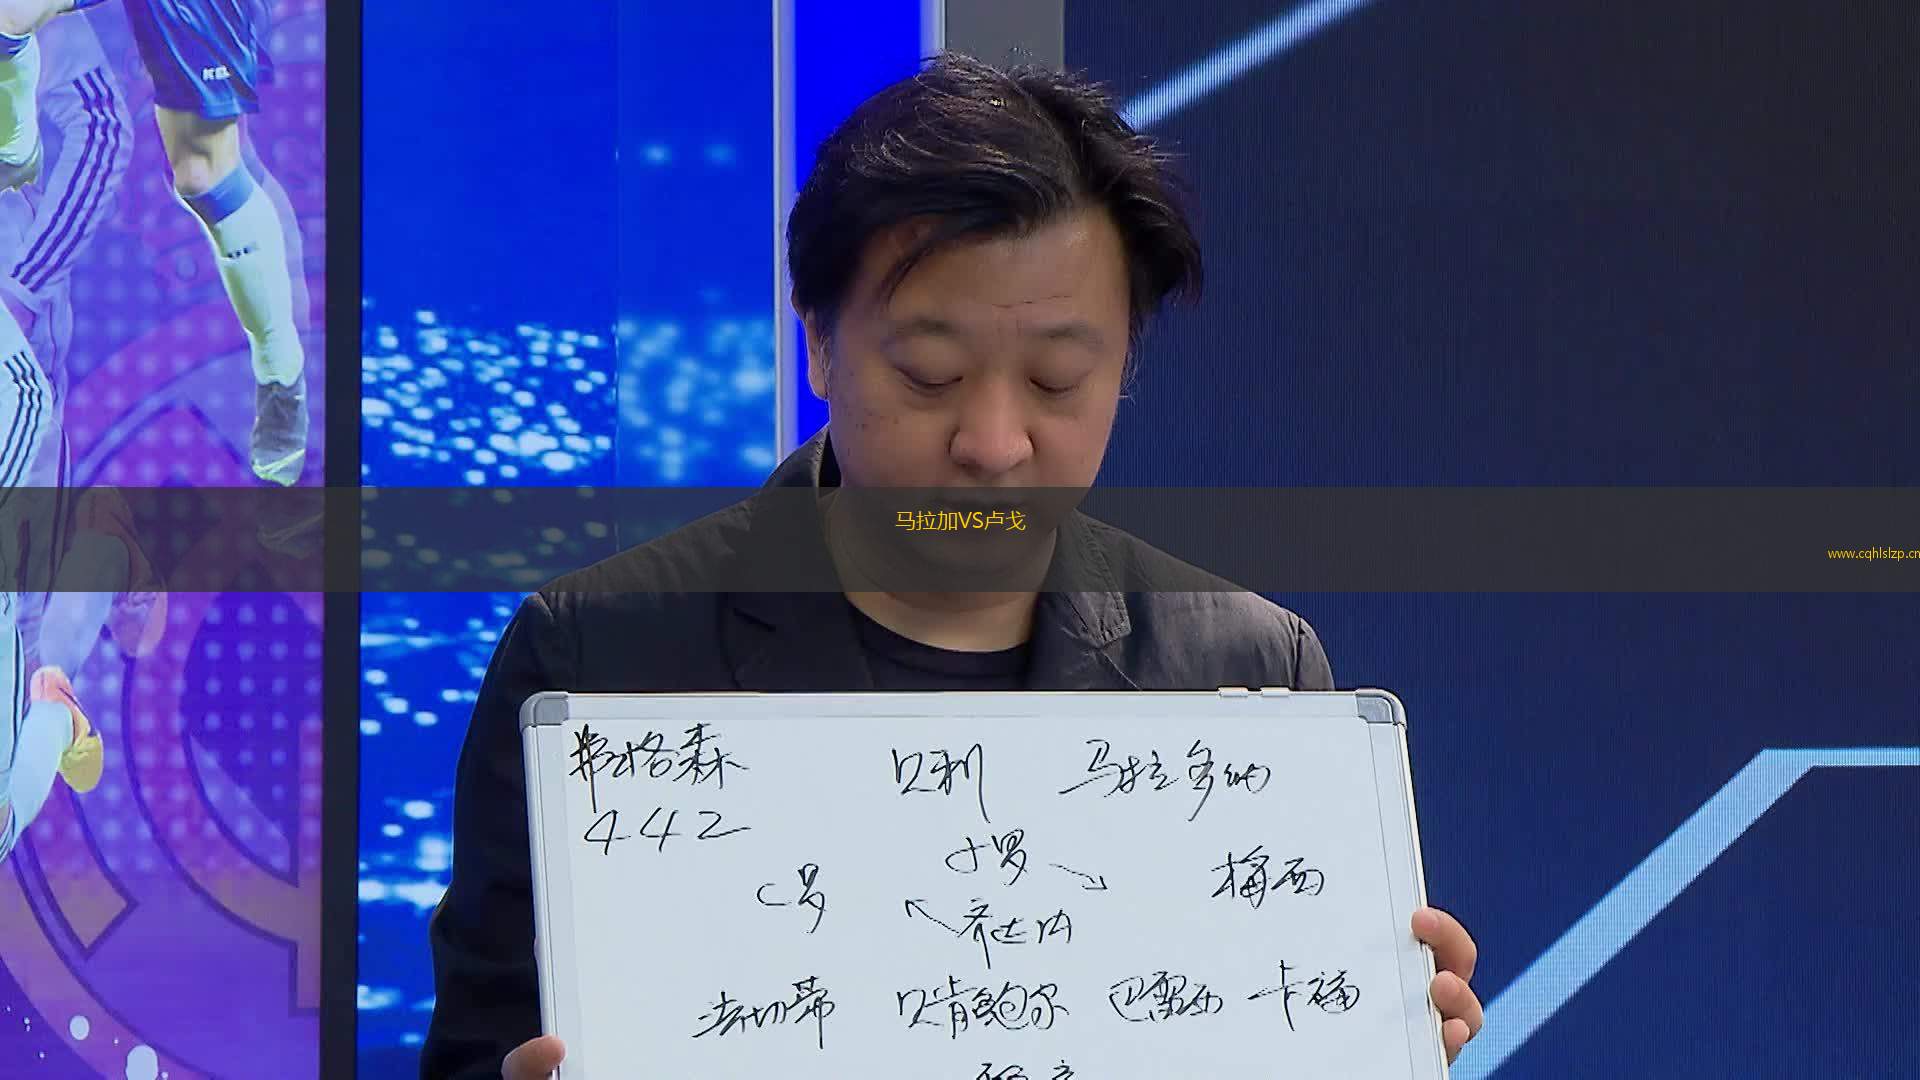 马拉加VS卢戈
www.cqhlslzp.cn
弗格森 贝利 马拉多纳
442
小罗
C罗 梅西
齐达内
法切蒂 贝肯鲍尔 巴雷西 卡福